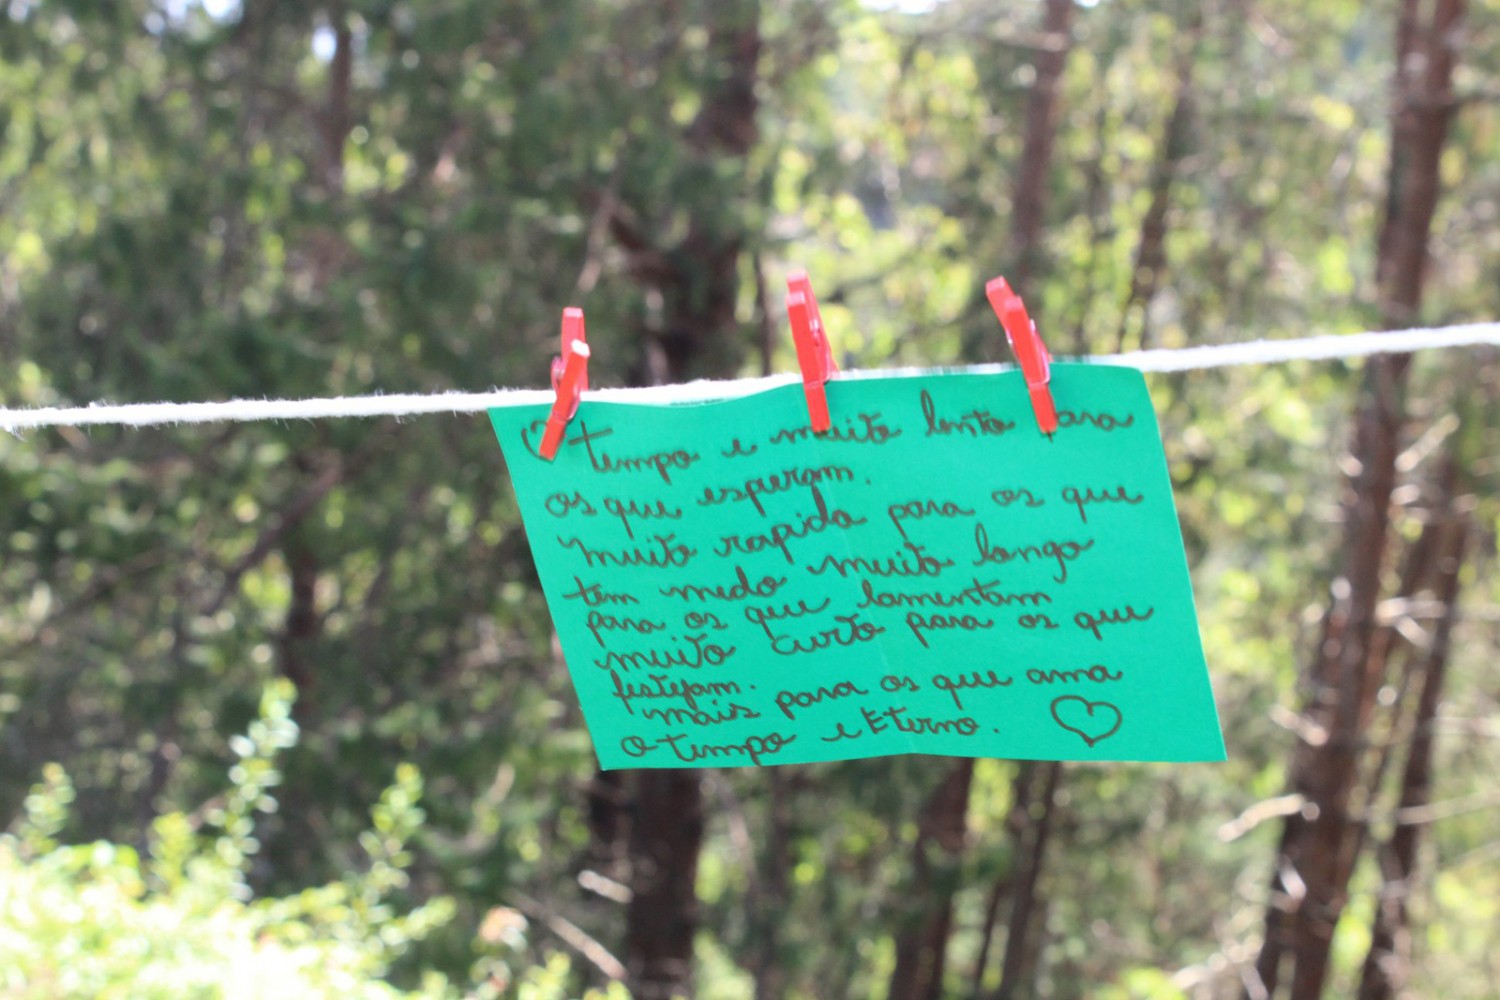 O tempo e muito lento para
os que esperam.
muito rapido para os que
tem medo muito longo
para os que lamentam
muito curto para os que
festejam.
mais para os que ama
o tempo e Eterno.